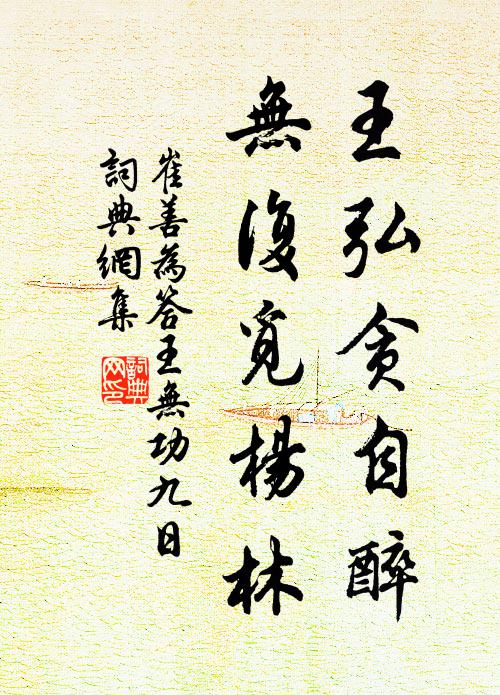 王弘貪自醉
無復覓楊林
崔善為答王無功九日
詞典網集
詞典
网印